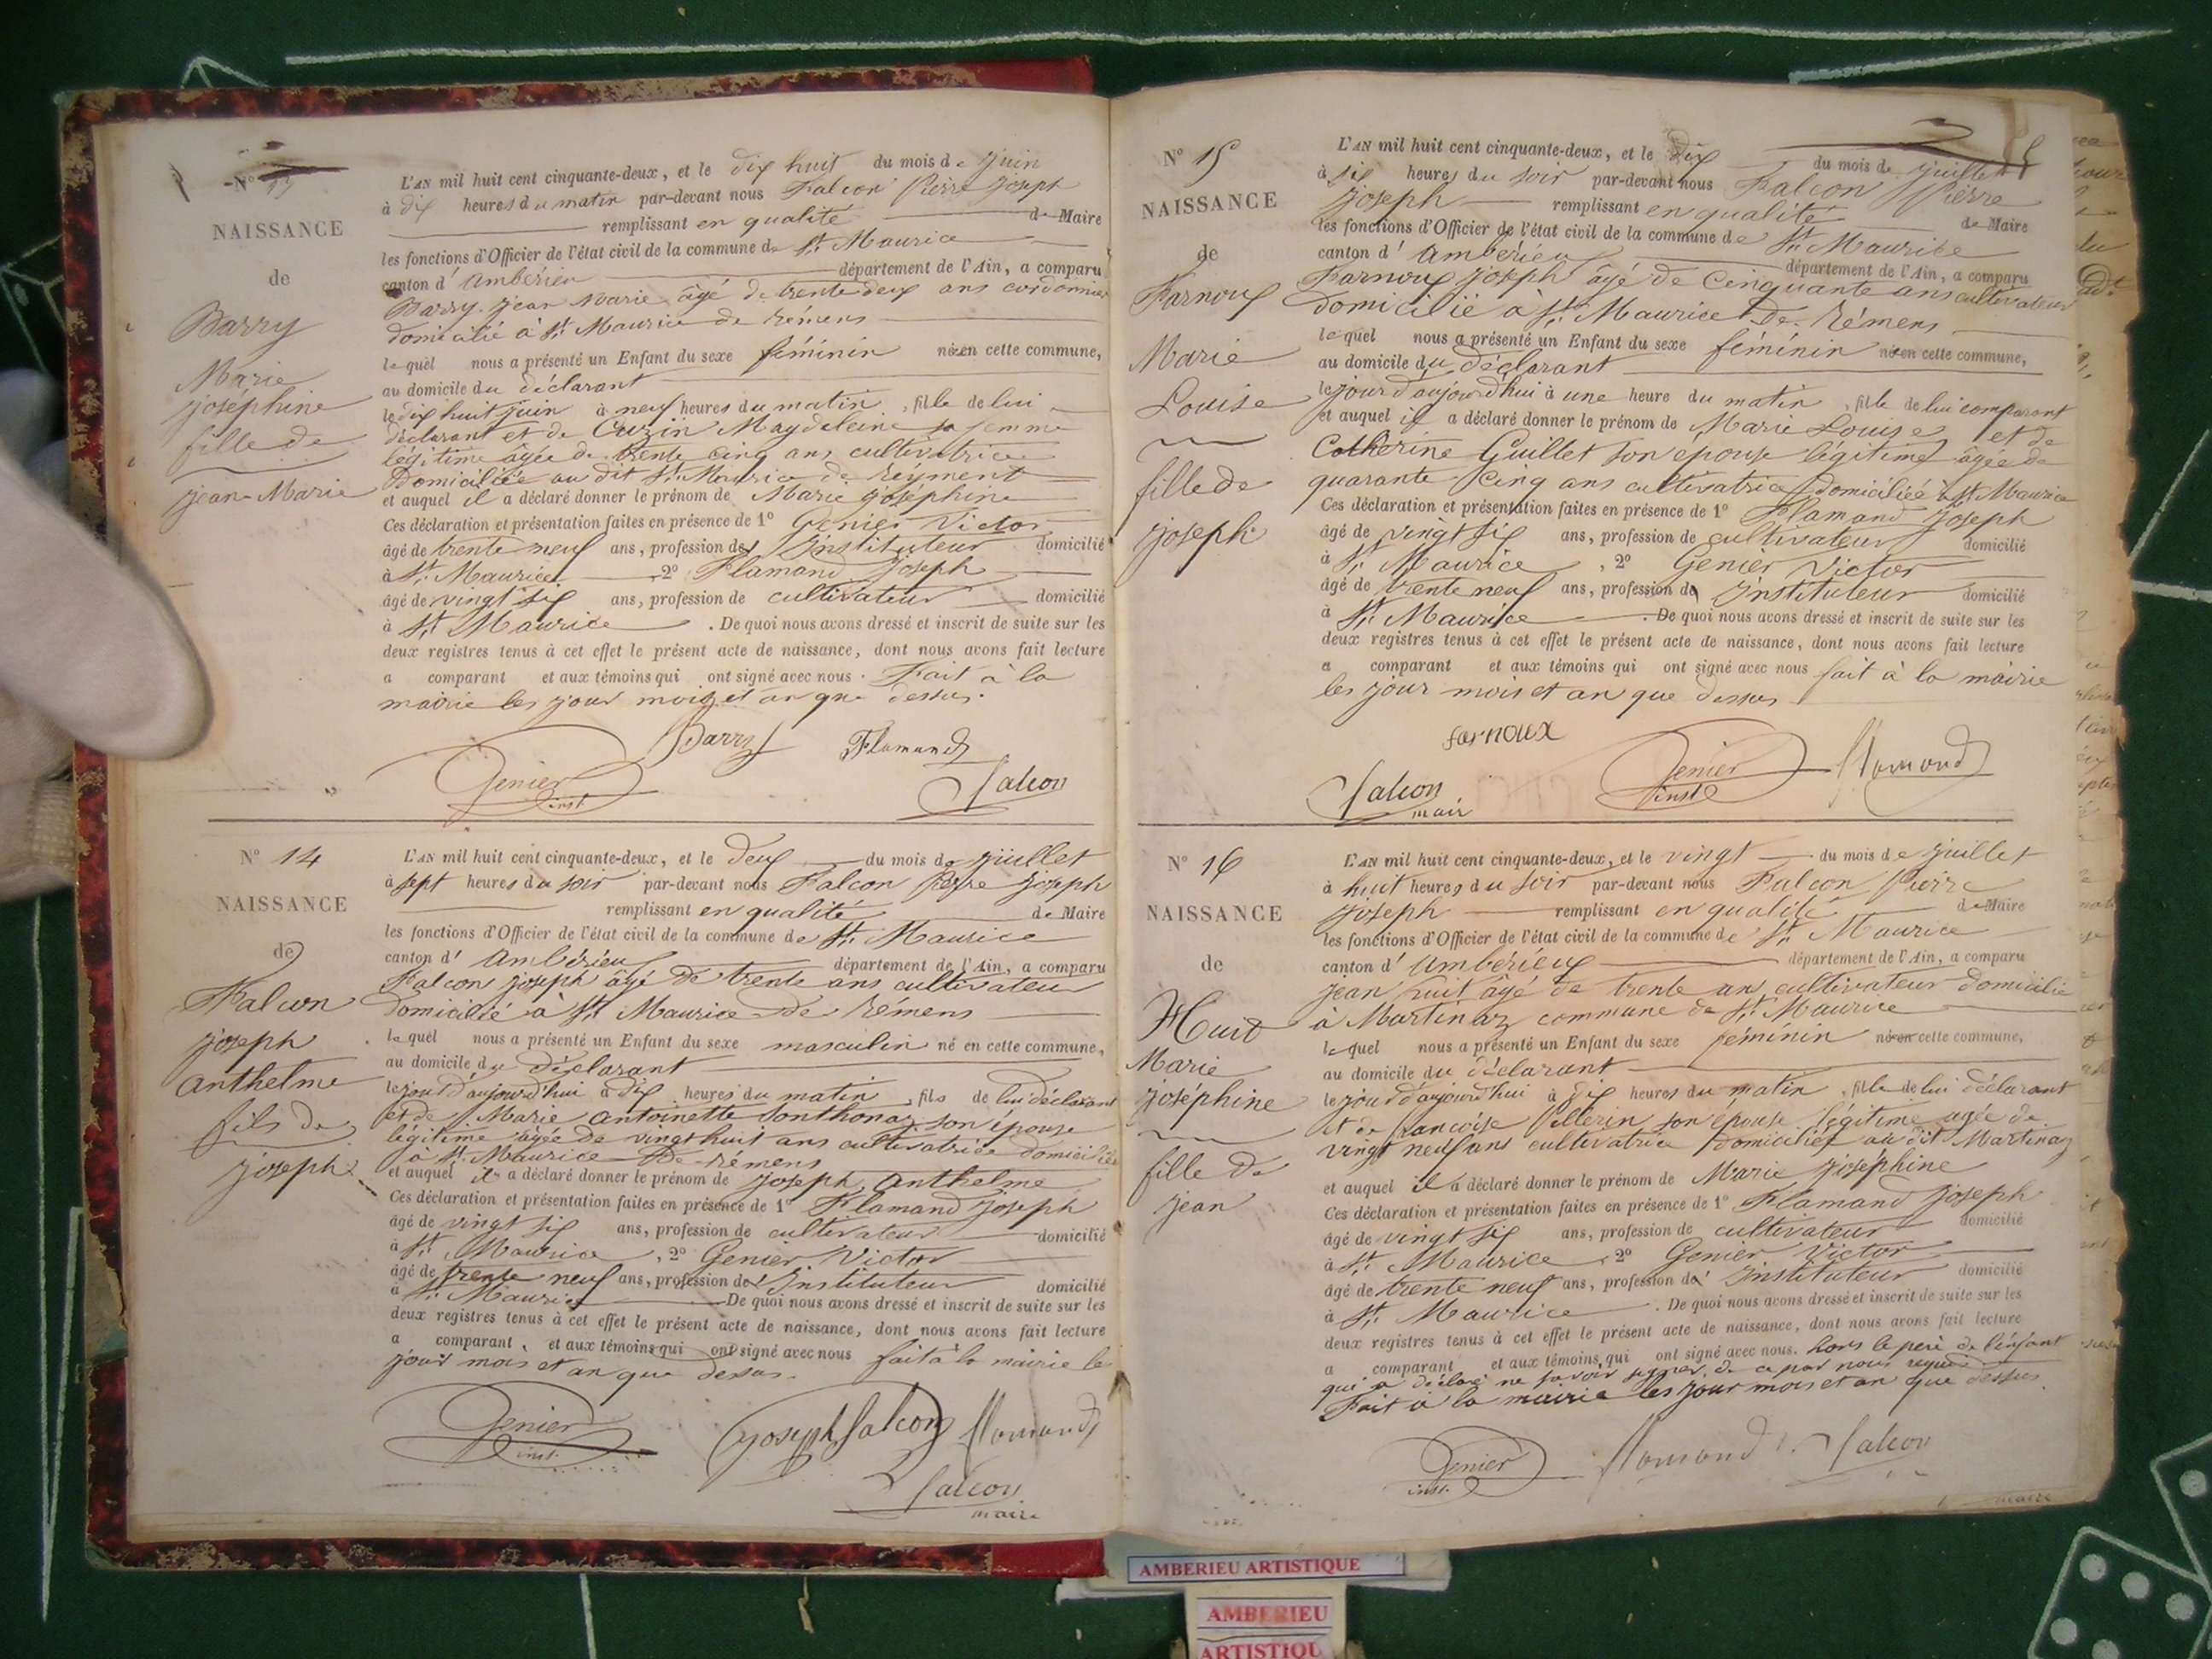 N° 13
NAISSANCE
de
Barry
Marie
joséphine
fille de
jean-Marie
L'AN mil huit cent cinquante-deux, et le dix huit du mois de juin
à dix heures du matin par-devant nous Falcon Pierre joseph
remplissant en qualité de Maire
les fonctions d'Officier de l'état civil de la commune de St. Maurice
canton d'Ambérieu département de l'Ain, a comparu
Barry jean Marie âgé de trente deux ans cordonnier
domicilié à St. Maurice de Rémens
lequel nous a présenté un Enfant du sexe féminin né en cette commune,
au domicile du déclarant
le dix huit juin à neuf heures du matin, fille de lui
déclarant et de Cuzin Magdeleine sa femme
légitime âgée de trente cinq ans cultivatrice
Domiciliée au dit St. Maurice de Réyment
et auquel il a déclaré donner le prénom de Marie joséphine
Ces déclaration et présentation faites en présence de 1° Genier Victor
âgé de trente neuf ans, profession de Instituteur domicilié
à St. Maurice 2° Flamand joseph
âgé de vingt six ans, profession de cultivateur domicilié
à St. Maurice . De quoi nous avons dressé et inscrit de suite sur les
deux registres tenus à cet effet le présent acte de naissance, dont nous avons fait lecture
a comparant et aux témoins qui ont signé avec nous. Fait à la
mairie les jour mois et an que dessus.
Barry Flamand
Genier inst Falcon
N° 14
NAISSANCE
de
Falcon
joseph
anthelme
fils de
joseph
L'AN mil huit cent cinquante-deux, et le deux du mois de juillet
à sept heures du soir par-devant nous Falcon Pierre joseph
remplissant en qualité de Maire
les fonctions d'Officier de l'état civil de la commune de St. Maurice
canton d'Ambérieu département de l'Ain, a comparu
Falcon joseph âgé de trente ans cultivateur
domicilié à St. Maurice de Rémens
lequel nous a présenté un Enfant du sexe masculin né en cette commune,
au domicile du déclarant
le jour d'aujourd'hui à dix heures du matin, fils de lui déclarant
et de Marie Antoinette Sonthonaz son épouse
légitime âgée de vingt huit ans cultivatrice domiciliée
à St. Maurice de Rémens
et auquel il a déclaré donner le prénom de joseph Anthelme
Ces déclaration et présentation faites en présence de 1° Flamand joseph
âgé de vingt six ans, profession de cultivateur domicilié
à St. Maurice, 2° Genier Victor
âgé de trente neuf ans, profession de Instituteur domicilié
à St. Maurice De quoi nous avons dressé et inscrit de suite sur les
deux registres tenus à cet effet le présent acte de naissance, dont nous avons fait lecture
a comparant et aux témoins qui ont signé avec nous fait à la mairie le
jour mois et an que dessus.
Genier inst. joseph falcon flamand
Falcon
maire
N° 15
NAISSANCE
de
Farnoux
Marie
Louise
fille de
joseph
L'AN mil huit cent cinquante-deux, et le dix du mois de juillet
à six heures du soir par-devant nous Falcon Pierre
joseph remplissant en qualité de Maire
les fonctions d'Officier de l'état civil de la commune de St. Maurice
canton d'Ambérieux département de l'Ain, a comparu
Farnoux joseph âgé de Cinquante ans cultivateur
domicilié à St. Maurice de Rémens
lequel nous a présenté un Enfant du sexe féminin né en cette commune,
au domicile du déclarant
le jour d'aujourd'hui à une heure du matin, fille de lui comparant
et auquel il a déclaré donner le prénom de Marie Louise et de
Catherine Guillet son épouse légitime âgée de
quarante Cinq ans cultivatrice domiciliée à St. Maurice
Ces déclaration et présentation faites en présence de 1° Flamand joseph
âgé de vingt six ans, profession de cultivateur domicilié
à St. Maurice, 2° Genier Victor
âgé de trente neuf ans, profession de Instituteur domicilié
à St. Maurice . De quoi nous avons dressé et inscrit de suite sur les
deux registres tenus à cet effet le présent acte de naissance, dont nous avons fait lecture
a comparant et aux témoins qui ont signé avec nous fait à la mairie
les jour mois et an que dessus
farnoux
Falcon Genier flamand
mair inst
N° 16
NAISSANCE
de
Huit
Marie
joséphine
fille de
jean
L'AN mil huit cent cinquante-deux, et le vingt du mois de juillet
à huit heures du soir par-devant nous Falcon Pierre
joseph remplissant en qualité de Maire
les fonctions d'Officier de l'état civil de la commune de St. Maurice
canton d'Ambérieux département de l'Ain, a comparu
jean huit âgé de trente ans cultivateur domicilié
à Martinaz commune de St. Maurice
lequel nous a présenté un Enfant du sexe féminin né en cette commune,
au domicile du déclarant
le jour d'aujourd'hui à dix heures du matin, fille de lui déclarant
et de francoise Pillerin son épouse légitime agée de
vingt neuf ans cultivatrice domiciliée au dit Martinaz
et auquel il a déclaré donner le prénom de Marie joséphine
Ces déclaration et présentation faites en présence de 1° Flamand joseph
âgé de vingt six ans, profession de cultivateur domicilié
à St. Maurice, 2° Genier Victor
âgé de trente neuf ans, profession de Instituteur domicilié
à St. Maurice . De quoi nous avons dressé et inscrit de suite sur les
deux registres tenus à cet effet le présent acte de naissance, dont nous avons fait lecture
a comparant et aux témoins qui ont signé avec nous. hors le père de l'enfant
qui a déclaré ne savoir signer de ce par nous requis
Fait à la mairie les jour mois et an que dessus
Genier flamand Falcon
inst. maire
AMBERIEU ARTISTIQUE
AMBERIEU
ARTISTIQU